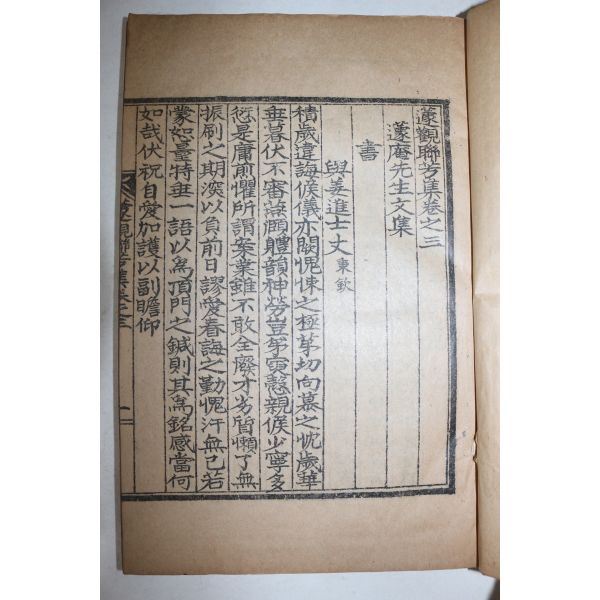 蘧觀聯芳集卷之三
蘧庵先生文集
書
與姜進士丈 秉欽
積歲違誨候儀亦闕愧悚之極第切向慕之忱歲華
垂暮伏不審燕頤體韻神勞豈弟寅慇親候少寧多
愆是庸煎懼所謂案業雖不敢全廢才劣質懶了無
振刷之期深以負前日謬愛眷誨之勤愧汗無已若
蒙恕臺特垂一語以爲頂門之鍼則其爲銘感當何
如哉伏祝自愛加護以副瞻仰
蘧觀聯芳集卷之三 一